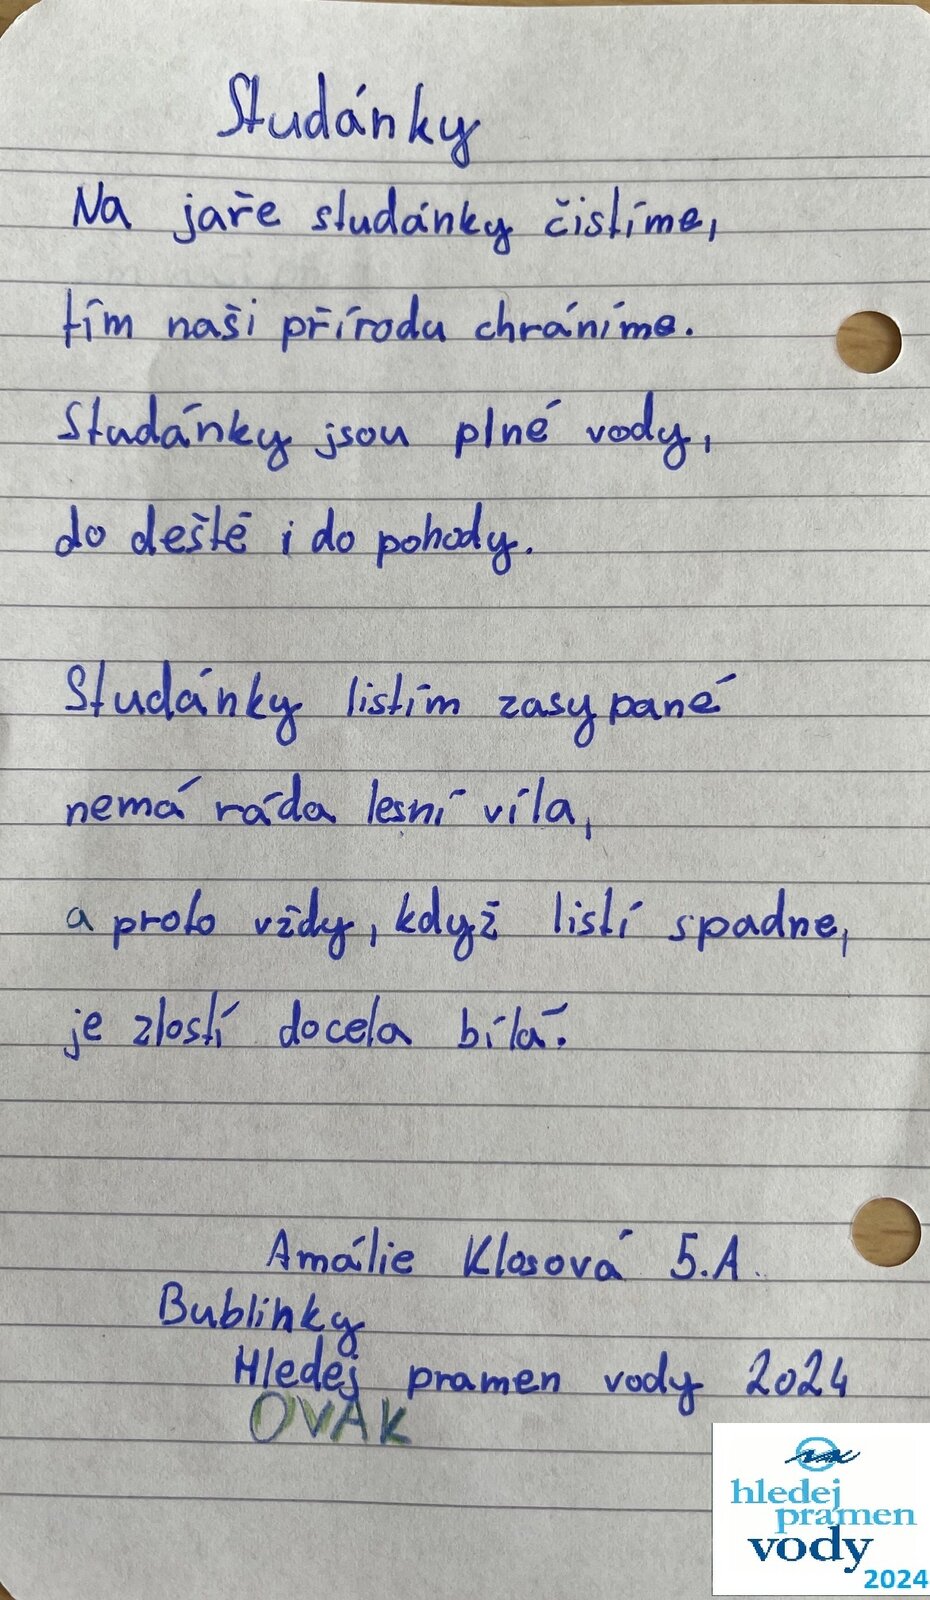 Studánky
Na jaře studánky čistíme,
tím naši přírodu chráníme.
Studánky jsou plné vody,
do deště i do pohody.
Studánky listím zasypané
nemá ráda lesní víla,
a proto vždy, když listí spadne,
je zlostí docela bílá.
Amálie Klosová 5.A.
Bublinky
Hledej pramen vody 2024
OVAK
hledej
pramen
vody
2024